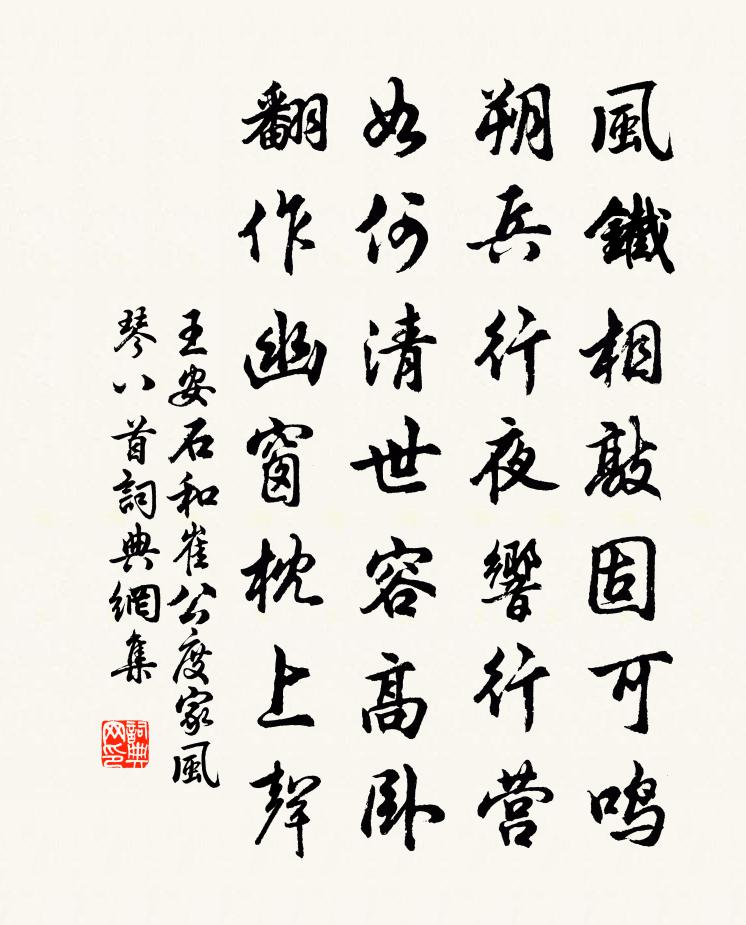 風鐵相敲固可鳴
朔兵行夜響行营
如何清世容高卧
翻作幽窗枕上聲
王安石和崔公度家風
琴八首詞典網集
詞典网印